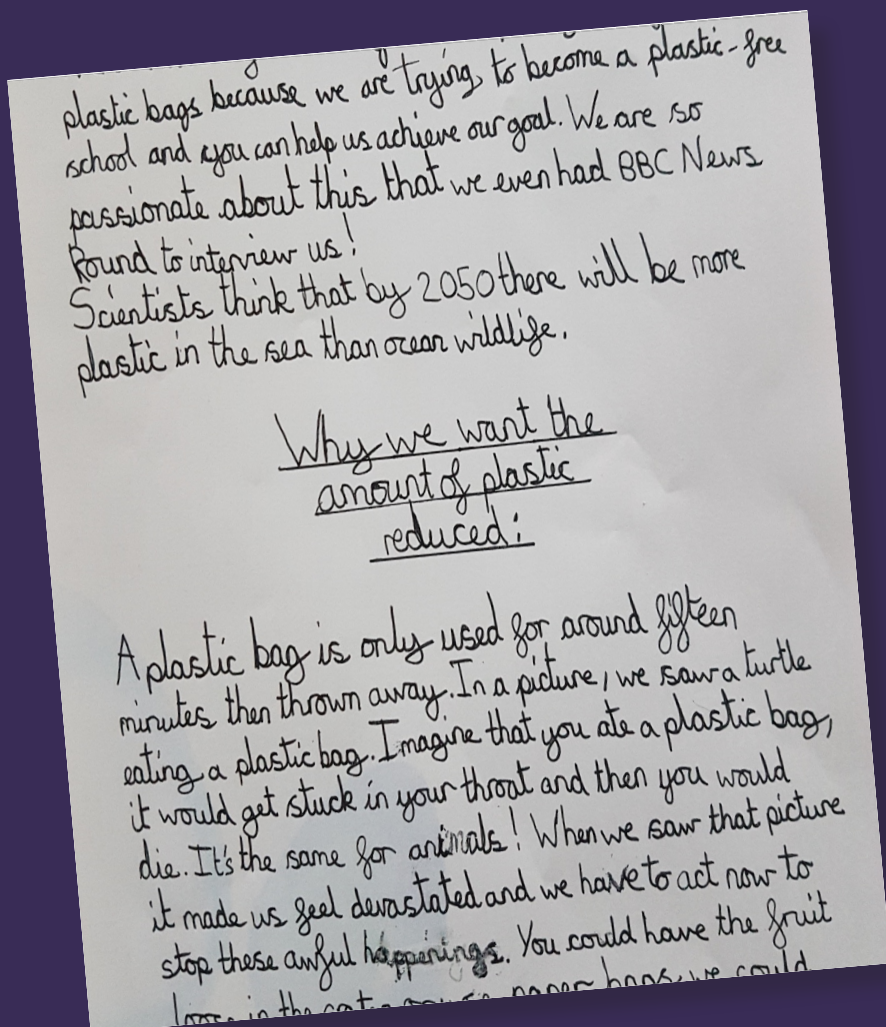 plastic bags because we are trying, to become a plastic-free
school and you can help us achieve our goal. We are so
passionate about this that we even had BBC News
Round to interview us!
Scientists think that by 2050 there will be more
plastic in the sea than ocean wildlife.
Why we want the
amount of plastic
reduced:
A plastic bag is only used for around fifteen
minutes then thrown away. In a picture, we saw a turtle
eating a plastic bag. Imagine that you ate a plastic bag,
it would get stuck in your throat and then you would
die. It's the same for animals! When we saw that picture
it made us feel devastated and we have to act now to
stop these awful happenings. You could have the fruit
in the paper bags, we could